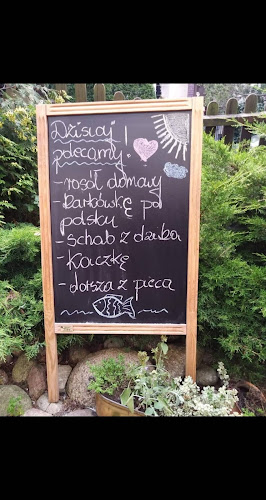 Dzisiaj
polecamy!
- rosół domowy
- Karkówkę po
polsku
- schab z dzika
- Kaczkę
- dorsza z pieca